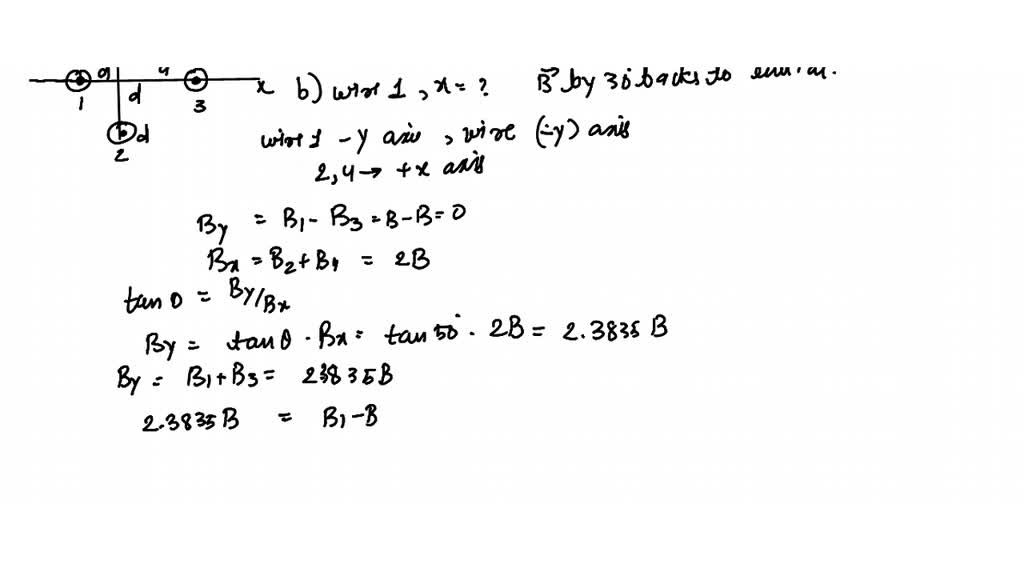 d
1
d
3
x
b) wire 1, x = ?
B⃗ by 30 backs to
d
2
wire 1 - y axis, wire (-y) axis
2,4 → +x axis
By = B1 - B3 = B - B = 0
Bx = B2 + B4 = 2B
tan θ = By/Bx
By = tan θ · Bx = tan 50° · 2B = 2.3835 B
By = B1 + B3 = 23835B
2.3835B = B1 - B